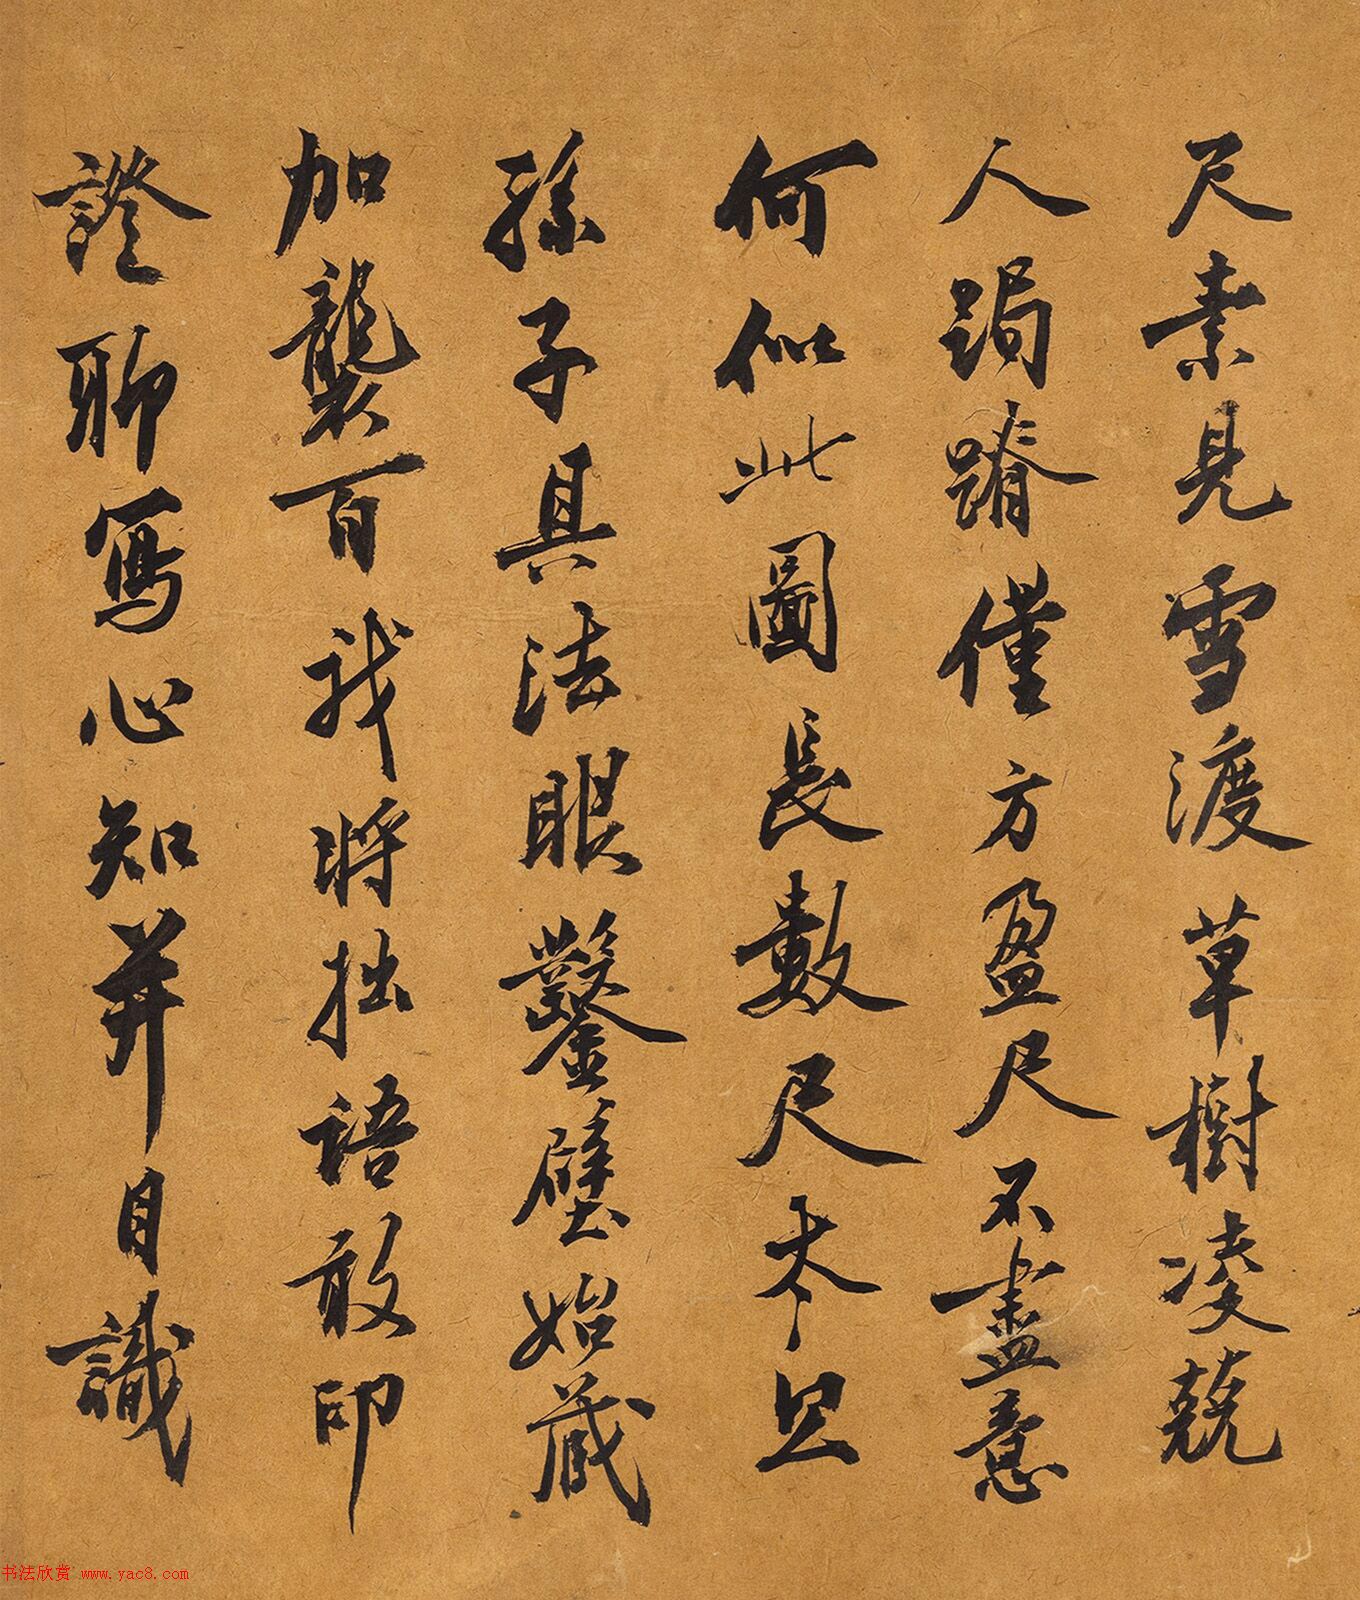 尺素見雪渡草樹凌兢
人跼蹐僅方盈尺不盡意
何似此圖長數尺太足
孫子具法眼鑿壁始藏
加襲百我將拙語敢印
證聊寫心知並自識
书法欣赏 www.yac8.com